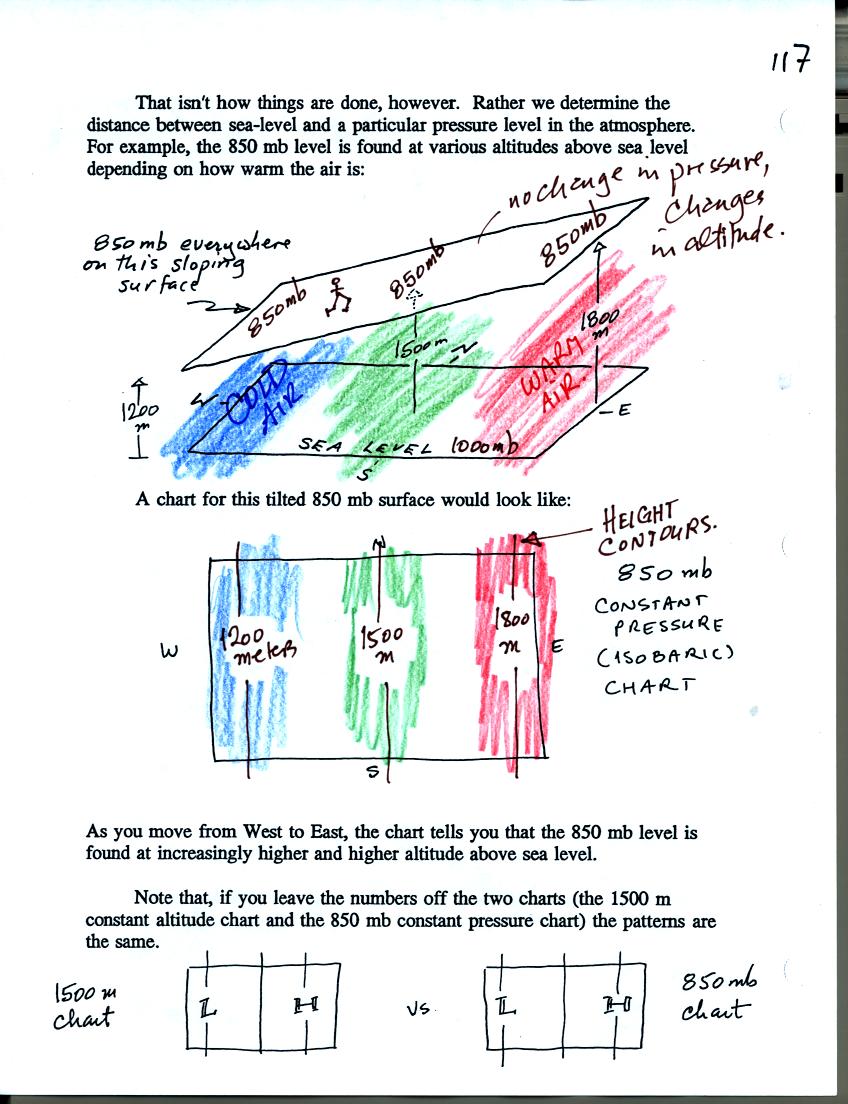 117
That isn't how things are done, however. Rather we determine the
distance between sea-level and a particular pressure level in the atmosphere.
For example, the 850 mb level is found at various altitudes above sea level
depending on how warm the air is:
no change in pressure,
changes
in altitude.
850 mb everywhere
on this sloping
surface
850mb
850mb
850mb
1200
m
1500 m
1800
m
W
N
COLD
AIR
WARM
AIR.
E
SEA LEVEL 1000mb
S
A chart for this tilted 850 mb surface would look like:
HEIGHT
CONTOURS.
N
850 mb
CONSTANT
PRESSURE
(ISOBARIC)
CHART
W
1200
meters
1500
m
1800
m
E
S
As you move from West to East, the chart tells you that the 850 mb level is
found at increasingly higher and higher altitude above sea level.
Note that, if you leave the numbers off the two charts (the 1500 m
constant altitude chart and the 850 mb constant pressure chart) the patterns are
the same.
1500 m
chart
L
H
vs.
L
H
850 mb
chart